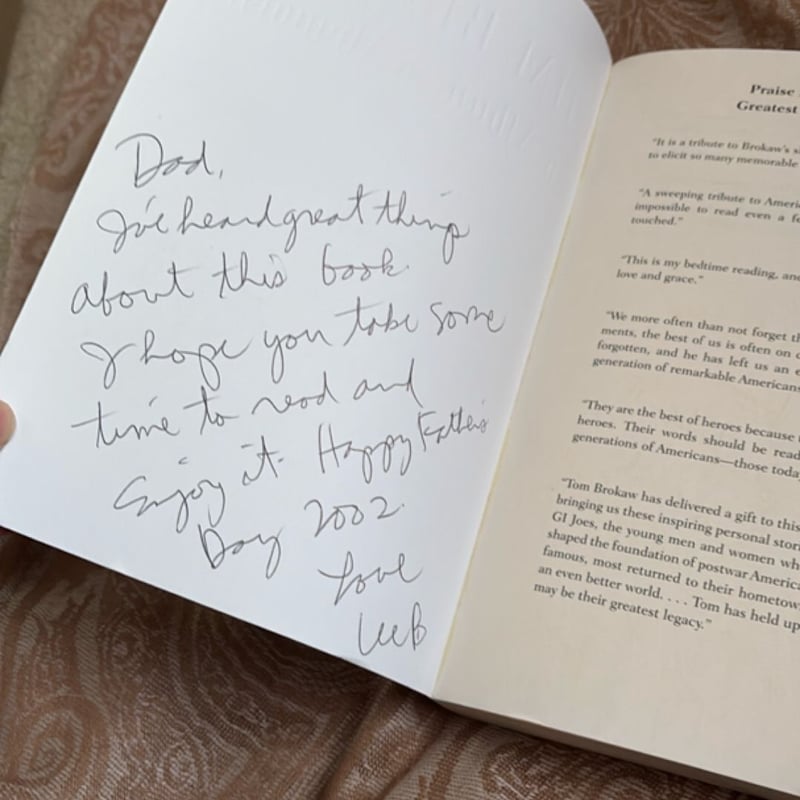 Dad,
I've heard great things
about this book.
I hope you take some
time to read and
Enjoy it. Happy Father's
Day 2002.
Love
Praise
Greatest
"It is a tribute to Brokaw's
to elicit so many memorable
"A sweeping tribute to
impossible to read even a
touched."
"This is my bedtime reading,
love and grace."
"We more often than not forget
ments, the best of us is often on
forgotten, and he has left us an
generation of remarkable Americans
"They are the best of heroes because
heroes. Their words should be read
generations of Americans—those
"Tom Brokaw has delivered a gift to this
bringing us these inspiring personal
GI Joes, the young men and women
shaped the foundation of postwar
famous, most returned to their
an even better world. . . . Tom has held up
may be their greatest legacy."